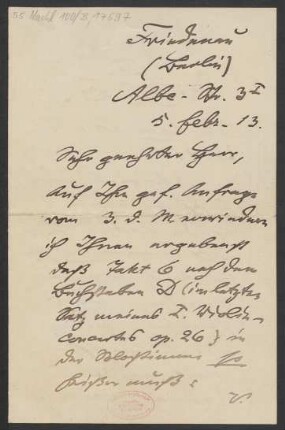 55 Nachl 130/B, 
Friedenau
(Berlin)
Albe-Str. 3 I
5. Febr. 13.
Sehr geehrter Herr,
Auf Ihre gef. Anfrage
vom 3. d. M erwiedere
ich Ihnen ergebenst
daß Takt 6 nach dem
Buchstaben D (im letzten
Satz meines I. Violin-
concertes op. 26) in
der Solostimme
heißen muß: